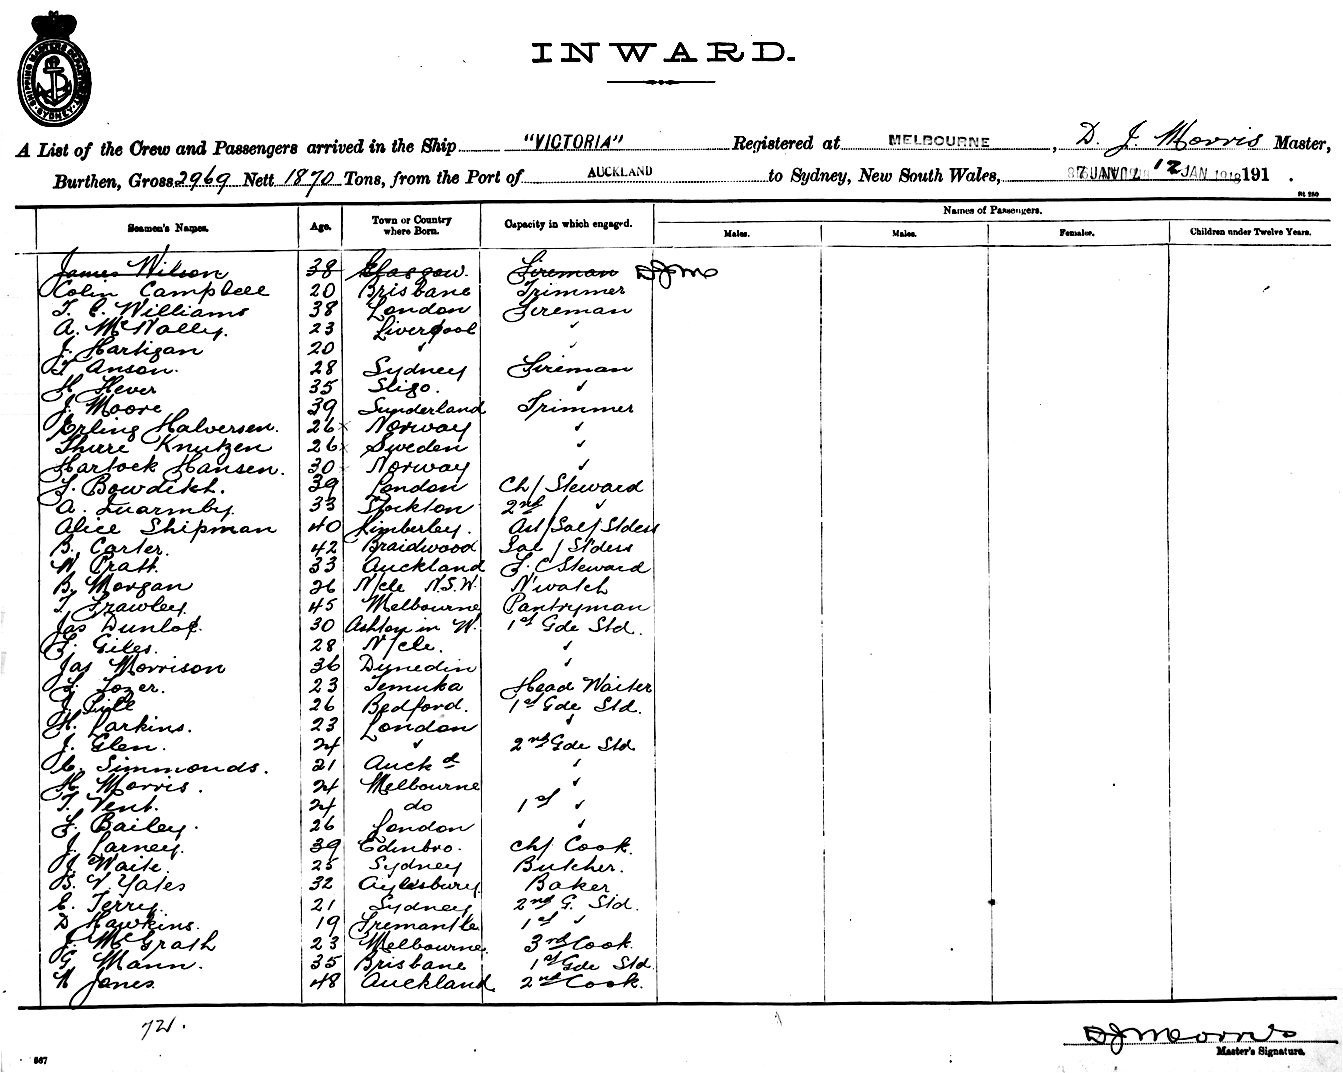 SHIPPING MASTERS DEPARTMENT SYDNEY
INWARD.
A List of the Crew and Passengers arrived in the Ship "VICTORIA" Registered at MELBOURNE, D. J. Morris Master,
Burthen, Gross 2969 Nett 1870 Tons, from the Port of AUCKLAND to Sydney, New South Wales, 12 JAN 191 .
Seamen's Names. Age. Town or Country where Born. Capacity in which engaged. Names of Passengers.
Males. Males. Females. Children under Twelve Years.
James Wilson 38 Glasgow. Fireman DJMo
Colin Campbell 20 Brisbane Trimmer
T. C. Williams 38 London Fireman
A. McNally. 23 Liverpool ✓
J. Hartigan 20 ✓ ✓
T Anson. 28 Sydney Fireman
H Hever 35 Sligo. ✓
J. Moore 39 Sunderland Trimmer
Erling Halversen. 26 x Norway ✓
Thure Knutzen 26 x Sweden ✓
Harlock Hansen. 30 x Norway ✓
F. Bowditch. 39 London Ch/ Steward
A. Quarmby. 33 Stockton 2nd / ✓
Alice Shipman 40 Kimberley. Ast/Sal/Stdess
B. Carter. 42 Braidwood Sal / Stdess
W Pratt. 33 Auckland F. C Steward
B. Morgan 26 N/cle N.S.W. N'watch
T. Frawley. 45 Melbourne Pantryman
Jas Dunlop. 30 Ashton in W. 1st Gde Std.
F. Giles. 28 N/cle. ✓
Jas Morrison 36 Dunedin ✓
F. Tozer. 23 Temuka Head Waiter
J. 26 Bedford. 1st Gde Std.
H. Larkins. 23 London ✓
J. Glen. 24 ✓ 2nd Gde Std
C. Simmonds. 21 Auckd ✓
H. Morris. 24 Melbourne ✓
T. Vent. 24 do 1st ✓
F. Bailey. 26 London ✓
J. Carney. 39 Edinbro. Ch/ Cook.
Waite. 25 Sydney Butcher.
B. V. Yates 32 Aylesbury Baker
E. Terry. 21 Sydney 2nd G. Std.
D Hawkins. 19 Fremantle 1st ✓
J. McGrath 23 Melbourne. 3rd Cook.
G. Mann. 35 Brisbane 1st Gde Std
N Jones 48 Auckland 2nd Cook.
721.
DJMorris
Master's Signature.
567